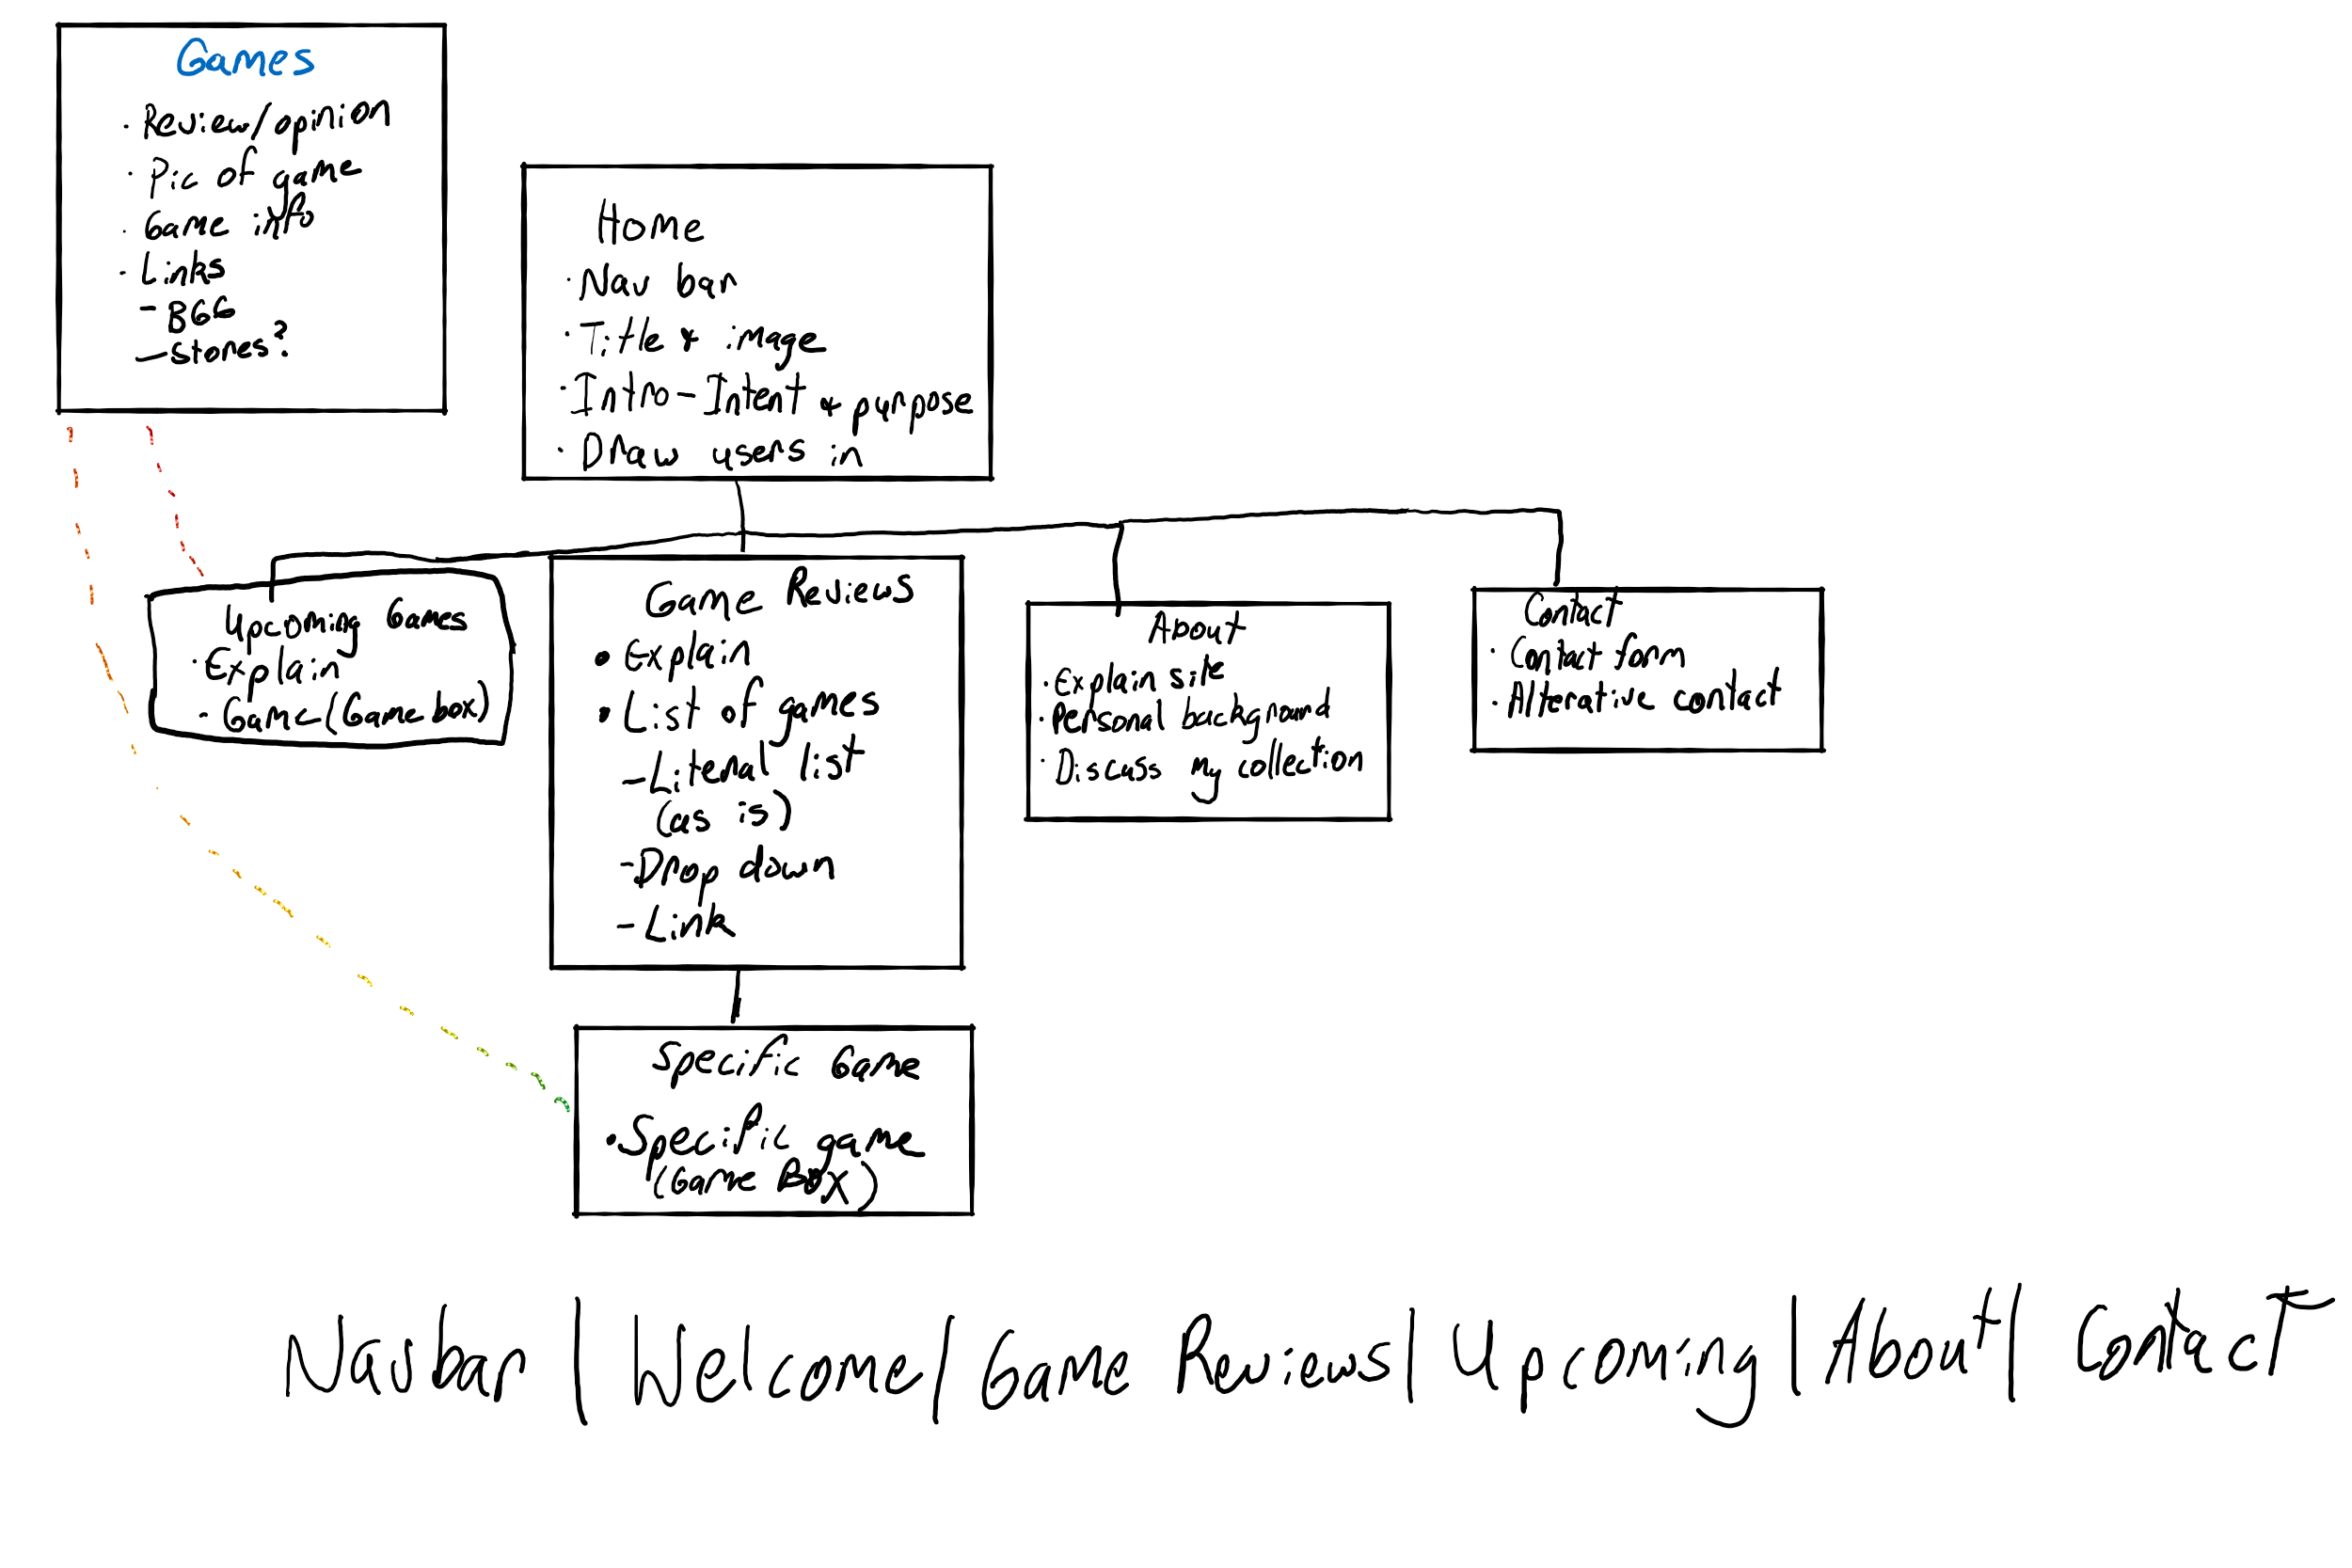 Games
· Review/opinion
· Pic of game
· Game info
· Links
- BGG
- stores?
Home
· Nav bar
· Title & image
· Intro - Intent & purpose
· Draw users in
Upcoming Games
· Explain
- Game (Game box)
Game Reviews
• Explain
• List of games
- Literal list
(as is)
- Drop down
- Link
About
· Explain site
· Personal background
· Discuss my collection
Contact
· Contact form
· Alterative contact
Specific Game
• Specific game
(Game Box)
Navbar | Welcome / Game Reviews | Upcoming | About | Contact